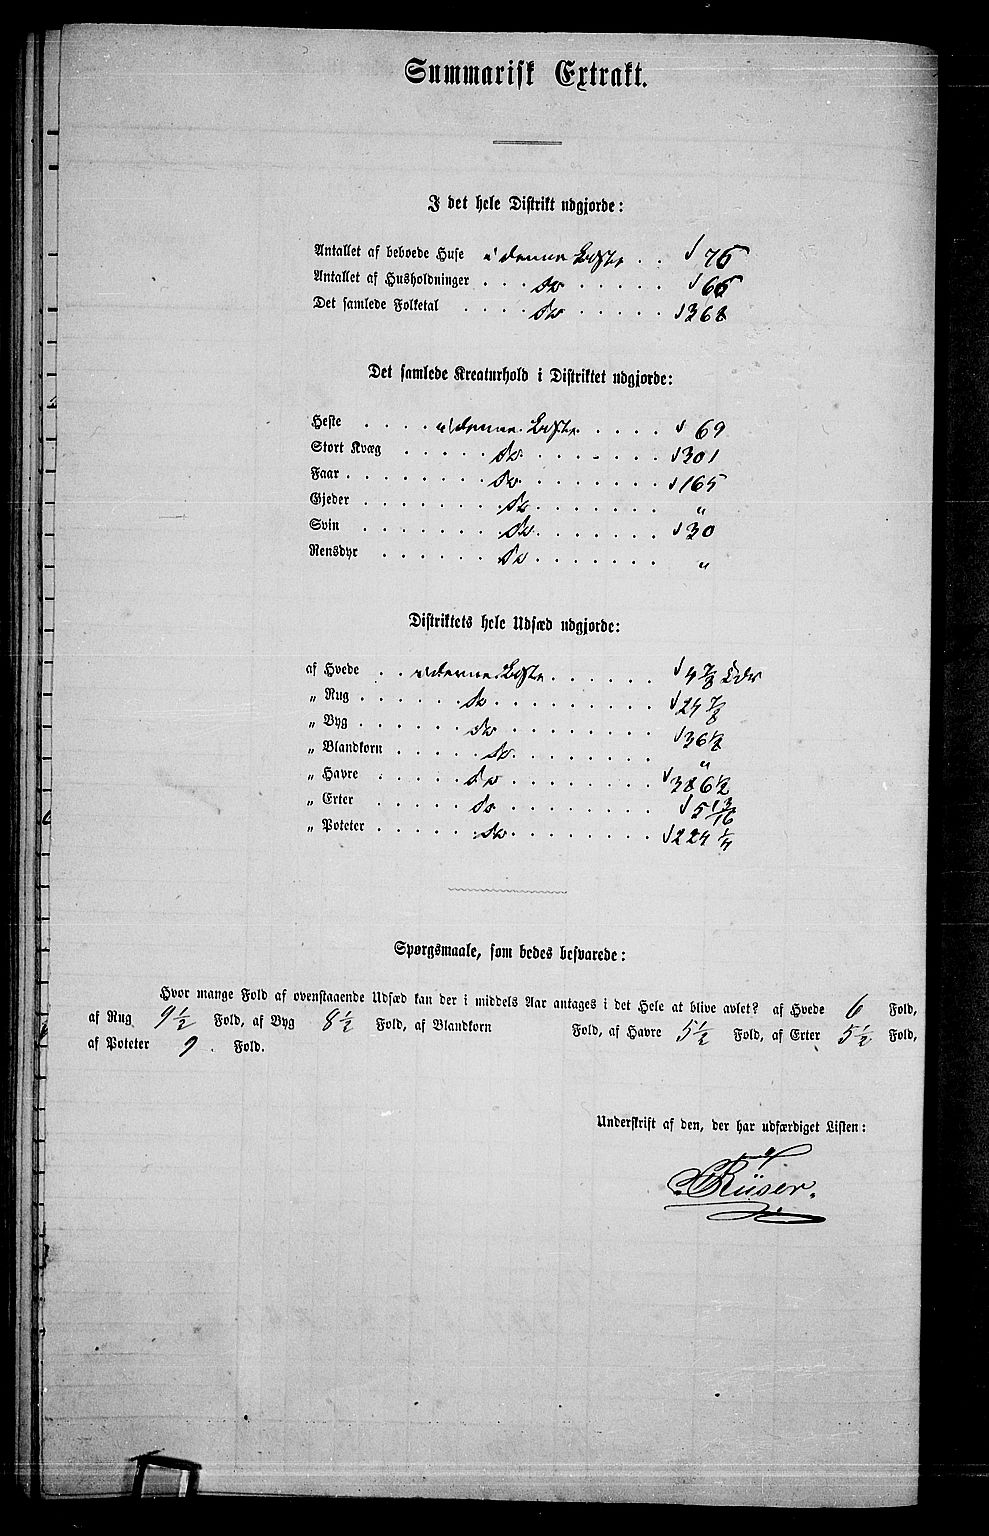 Summarisk Extrakt.
I det hele Distrikt udgjorde:
Antallet af beboede Huse i denne Liste . . 75
Antallet af Husholdninger . . . do . . . . . . 66
Det samlede Folketal . . . . do . . . . . . 368
Det samlede Kreaturhold i Distriktet udgjorde:
Heste . . . . i denne Liste . . . . 69
Stort Kvæg . . . . do . . . . . . . 301
Faar . . . . . . . do . . . . . . . 165
Gjeder . . . . . . do . . . . . . . "
Svin . . . . . . . do . . . . . . . 30
Rensdyr . . . . . do . . . . . . . "
Distriktets hele Udsæd udgjorde:
af Hvede . . i denne Liste . . . . . . 4 7/8 Tdr
„ Rug . . . . . do . . . . . . . . . 24 7/8
„ Byg . . . . . do . . . . . . . . . 36 1/2
„ Blandkorn . . . . do . . . . . . . . "
„ Havre . . . . do . . . . . . . . 386 1/2
„ Erter . . . . do . . . . . . . . 5 13/16
„ Poteter . . . . . do . . . . . . . . 224 1/4
Spørgsmaale, som bedes besvarede:
Hvor mange Fold af ovenstaaende Udsæd kan der i middels Aar antages i det Hele at blive avlet? af Hvede 6 Fold,
af Rug 9 1/2 Fold, af Byg 8 1/2 Fold, af Blandkorn Fold, af Havre 5 1/2 Fold, af Erter 5 1/2 Fold,
af Poteter 9 . Fold.
Underskrift af den, der har udfærdiget Listen:
Rüser